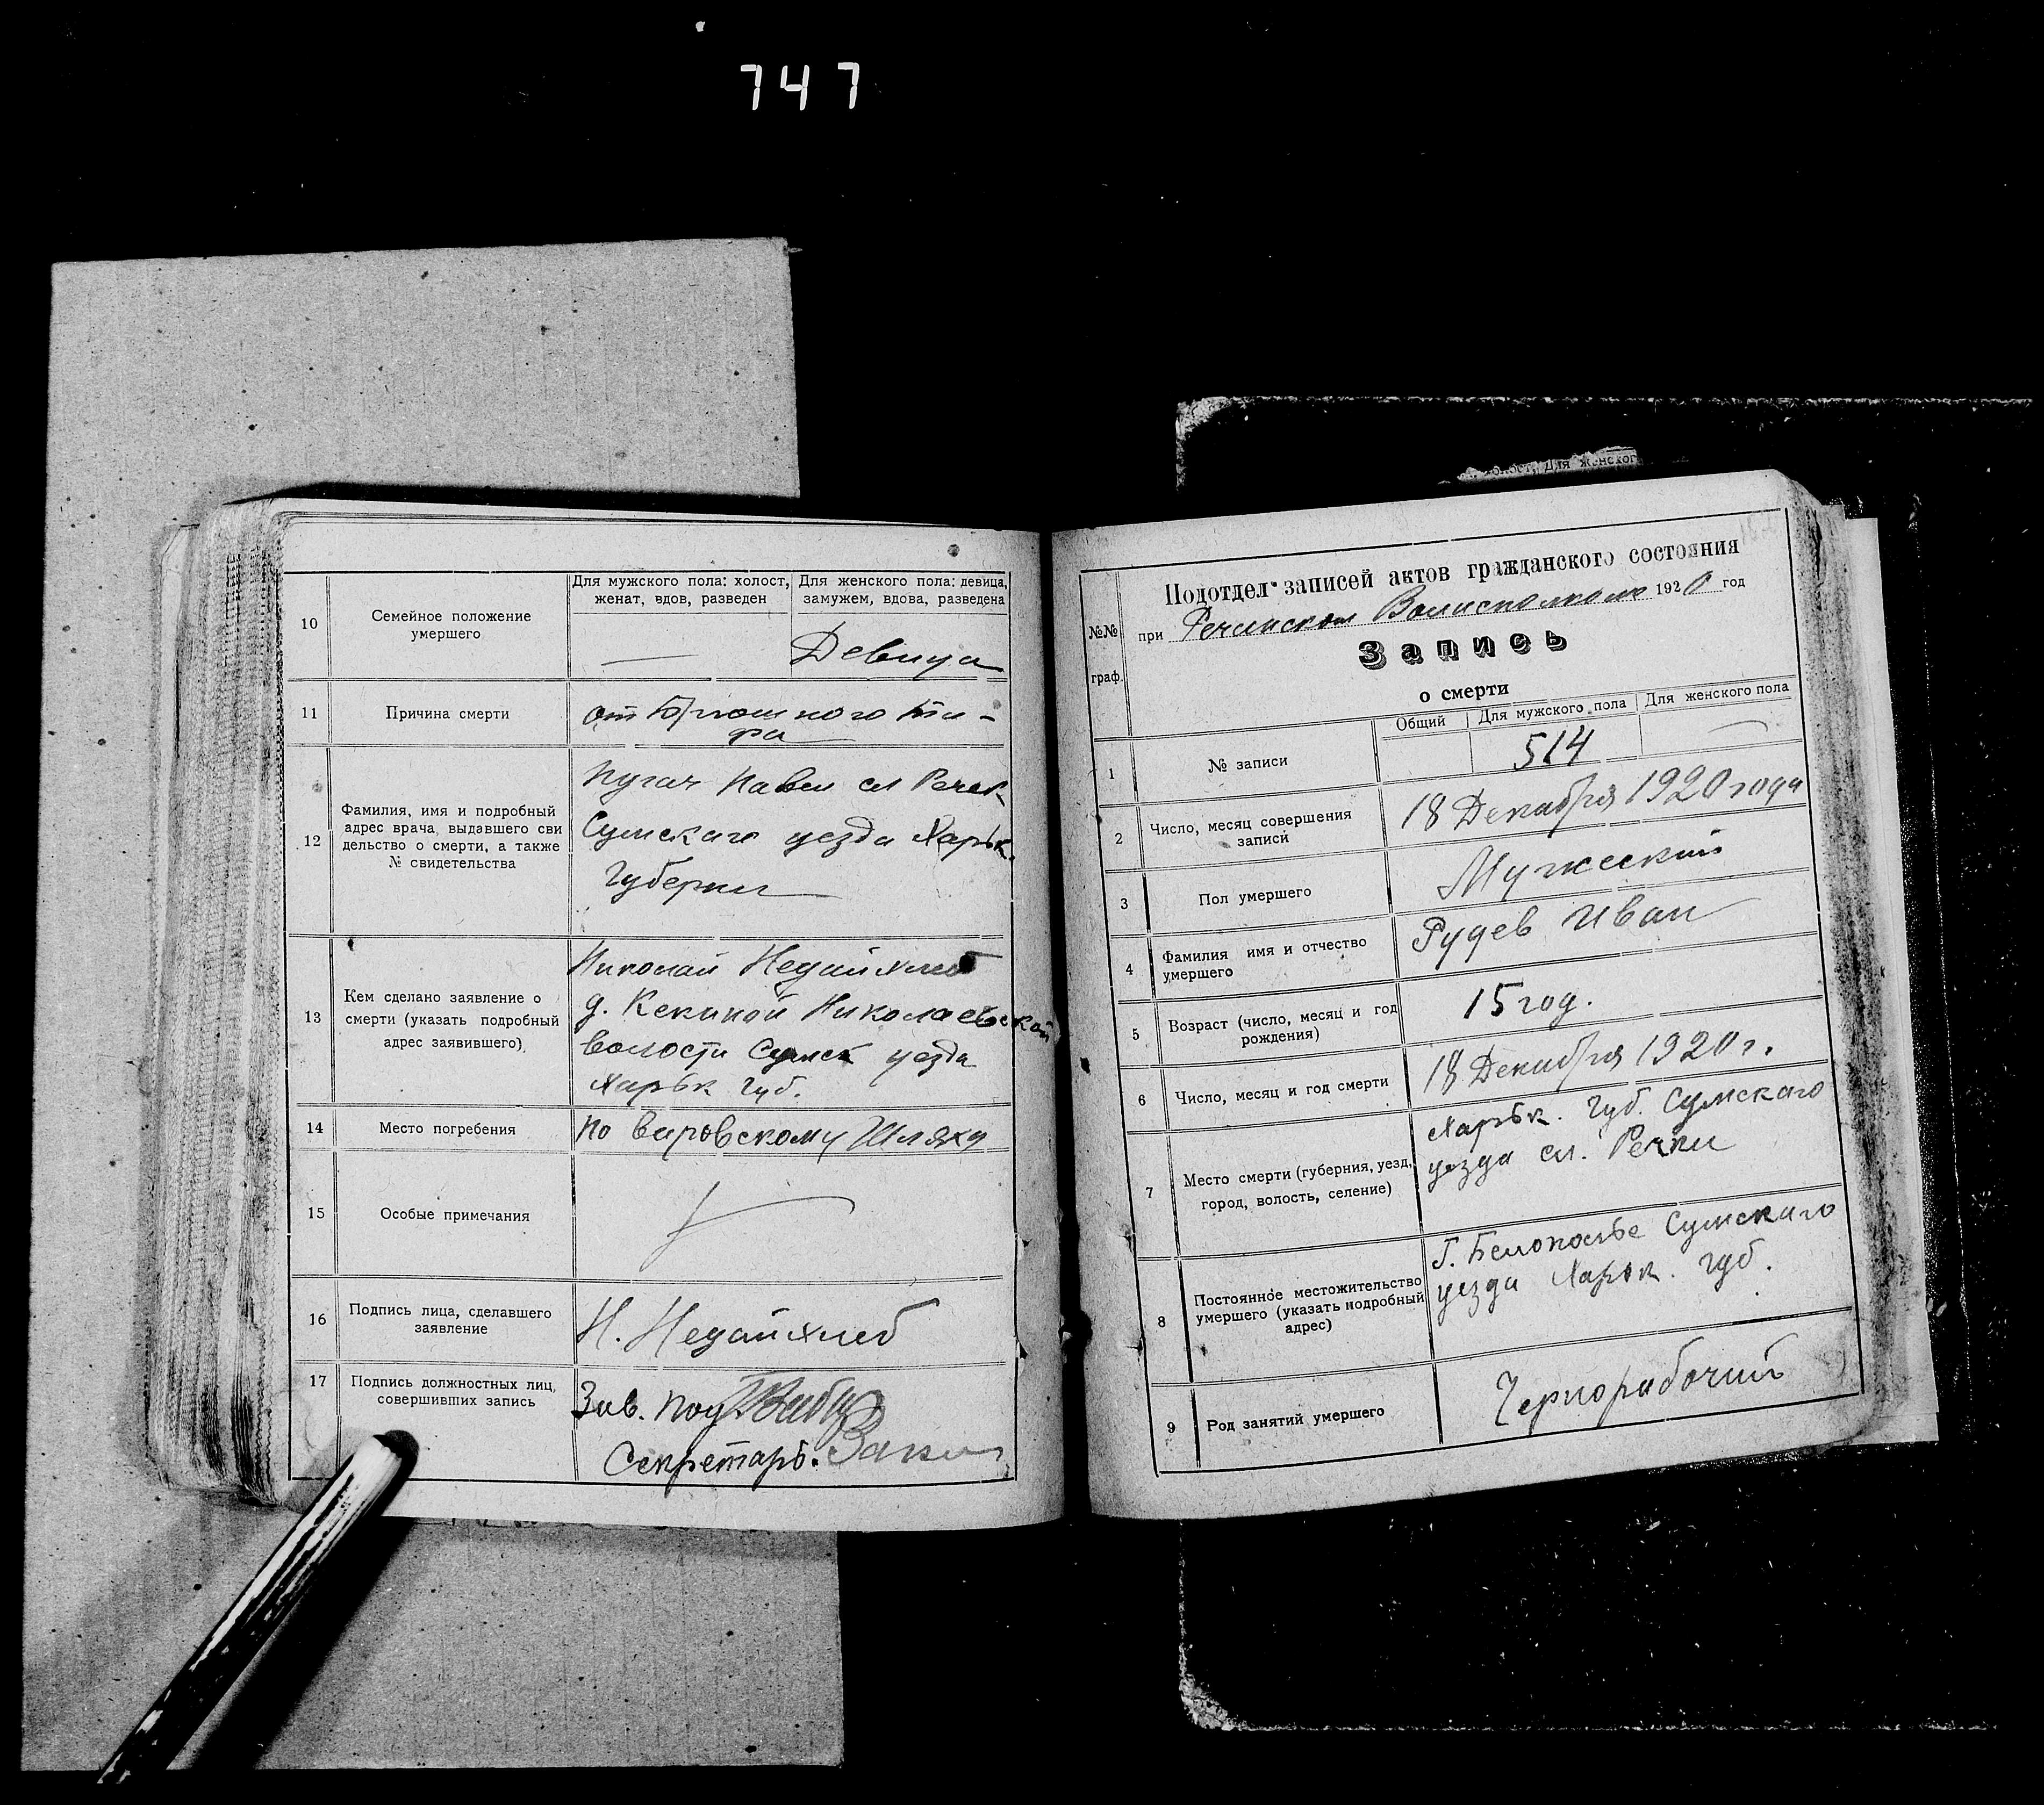 747
10
Семейное положение
умершего
Для мужского пола: холост,
женат, вдов, разведен
Для женского пола: девица,
замужем, вдова, разведена
Девица
11
Причина смерти
от Брюшного ти-
фа
12
Фамилия, имя и подробный
адрес врача, выдавшего сви
дельство о смерти, а также
№ свидетельства
Пугач Павел сл Речек
Сумскаго уезда Харьк.
Губернии
13
Кем сделано заявление о
смерти (указать подробный
адрес заявившего)
Николай Недайхлеб
д. Кекиной Николаевской
волости Сумск уезда
Харьк губ.
14
Место погребения
по вировскому Шляху
15
Особые примечания
16
Подпись лица, сделавшего
заявление
Н. Недайхлеб
17
Подпись должностных лиц,
совершивших запись
Зав. Под
Секретарь.
Для женского
№№
граф.
Подотдел записей актов гражданского состояния
при Речинском Волисполкоме 1920 год
Запись
о смерти
Общий
Для мужского пола
Для женского пола
1
№ записи
514
2
Число, месяц совершения
записи
18 Декабря 1920 года
3
Пол умершего
Мужеский
4
Фамилия имя и отчество
умершего
Рудев Иван
5
Возраст (число, месяц и год
рождения)
15 год.
6
Число, месяц и год смерти
18 Декабря 1920 г.
7
Место смерти (губерния, уезд,
город, волость, селение)
Харьк. губ. Сумскаго
уезда сл. Речки
8
Постоянное местожительство
умершего (указать подробный
адрес)
Г. Белополье Сумскаго
уезда Харьк. губ.
9
Род занятий умершего
Чернорабочий